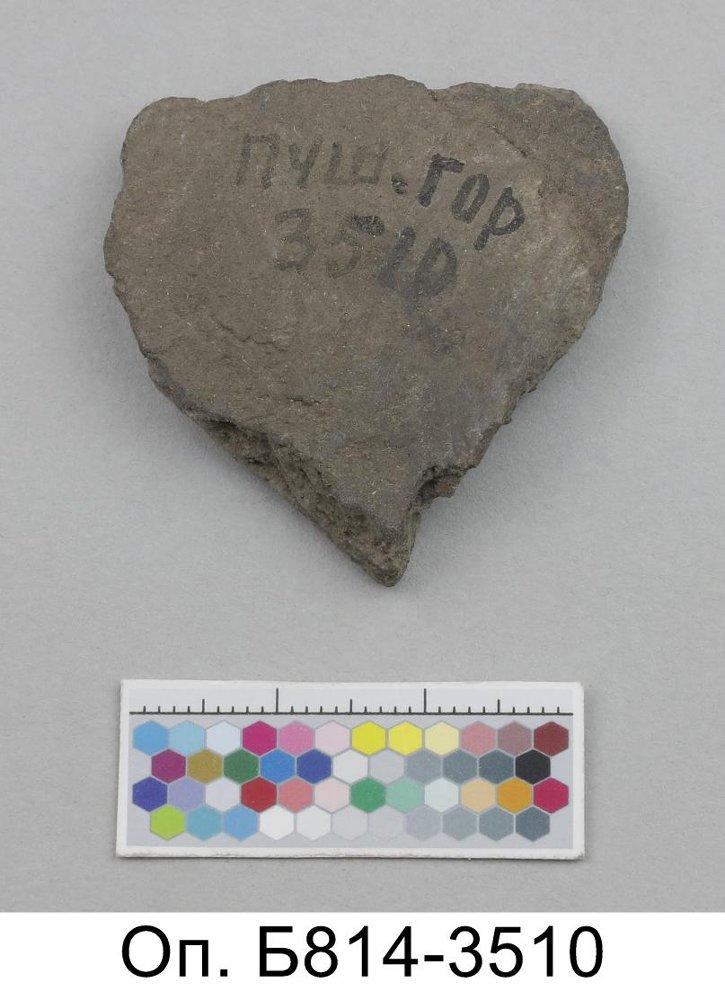 ПУШ.ГОР
3510
Оп. Б814-3510